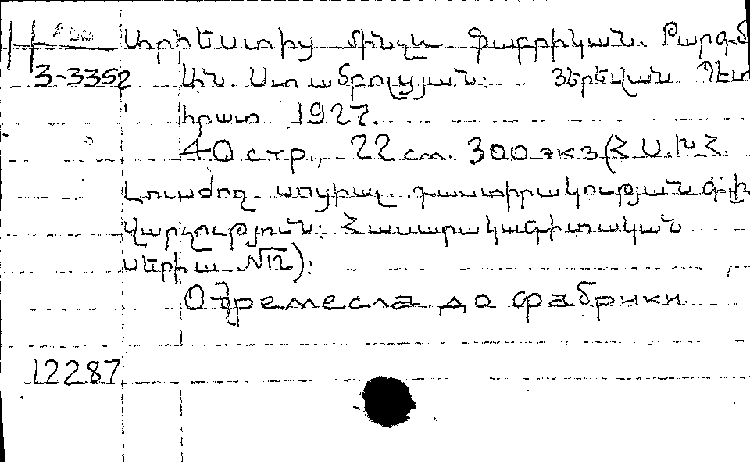 Արհեստից մինչև ֆաբրիկան. Թարգմ
3-3352 Ան. Ստամբոլցյան: Յերևան Պետ
հրատ 1927.
40 стр., 22 см. 300 экз (Հ.Ս.Խ.Հ.
Լուսժող սոցիալ. դաստիրակության գլխ
վարչություն: Հասարակագիտական
սերիա №12):
От ремесла до фабрики
12287